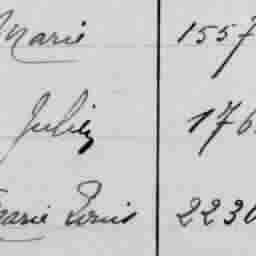 Marie 1557
Julien 176
Marie Louis 2236